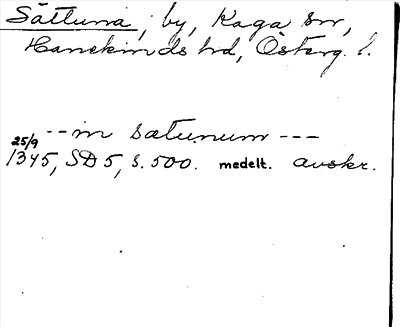 Sättuna, by, Kaga sn,
Hanekinds hd, Österg. l.
--in sætunum ---
25/9
1345, SD 5, s. 500. medelt. avskr.